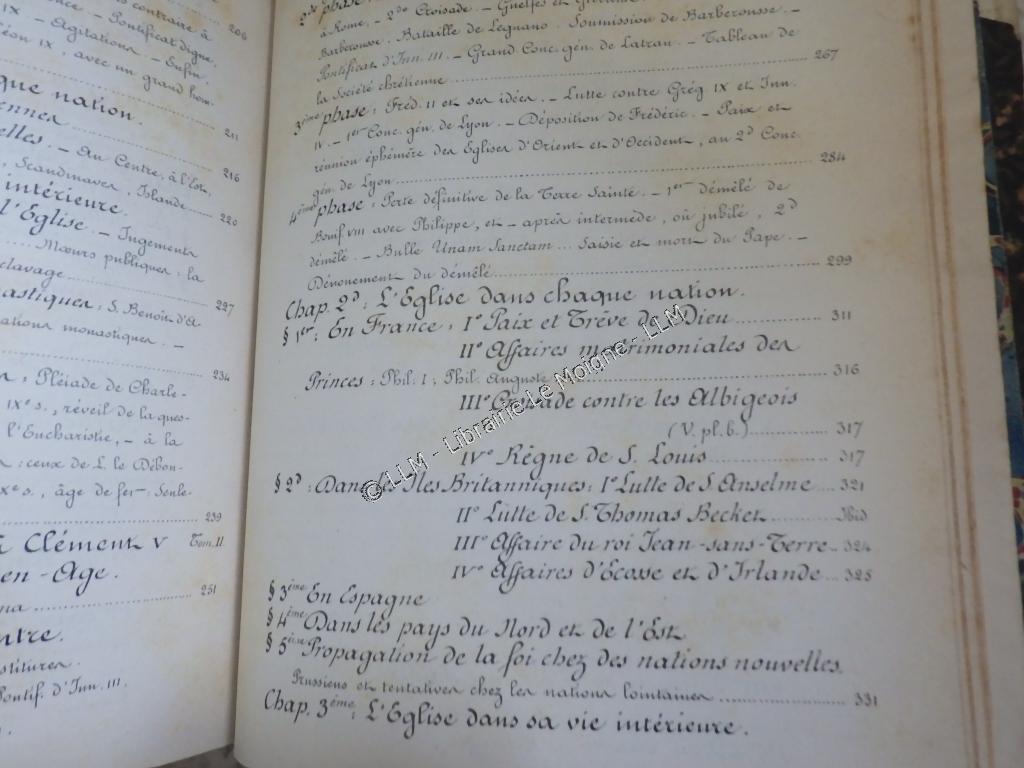 contraire à
IX
Pontificat digne,
206
Agitations. - Enfin
éon IX, avec un grand hom-
que nation.
ennes
211
elles. - Au Centre, à l'Est,
216
Scandinaves, Islande
220
intérieure.
l'Eglise. - Jugements
Mœurs publiques: la
clavage
227
nastiques: S. Benoît d'A
ations monastiques. -
234
: Pléiade de Charle-
IXe s., réveil de la ques-
l'Eucharistie, - à la
: ceux de L. le Débon-
Xe s., âge de fer: Seule-
239
à Clément V Tom. II
en-Age.
251
ntre.
stitures.
Pontif. d'Inn. III.
2de phase:
à Rome. - 2de Croisade. - Guelfes et
Barberousse. Bataille de Legnano. Soumission de Barberousse. -
Pontificat d'Inn. III. - Grand Conc. gén. de Latran. - Tableau de
la Société chrétienne 267
3ème phase: Fréd. II et ses idées. - Lutte contre Grég. IX et Inn.
IV. - 1er Conc. gén. de Lyon. - Déposition de Frédéric. - Paix et
réunion éphémère des Eglises d'Orient et d'Occident, au 2d Conc.
gén. de Lyon 284
4ème phase: Perte définitive de la Terre Sainte. - 1er démêlé de
Bonif. VIII avec Philippe, et - après intermède, où jubilé, 2d
démêlé. - Bulle Unam Sanctam... Saisie et mort du Pape. -
Dénouement du démêlé 299
Chap. 2d: L'Eglise dans chaque nation.
§ 1er: En France: Iº Paix et Trêve de Dieu 311
IIº Affaires matrimoniales des
Princes: Phil. I; Phil. Auguste 316
IIIº Croisade contre les Albigeois
(V. pl. b.) 317
IVº Règne de S. Louis 317
§ 2d: Dans les Iles Britanniques: Iº Lutte de S. Anselme 321
IIº Lutte de S. Thomas Becket Ibid
IIIº Affaire du roi Jean-sans-Terre 324
IVº Affaires d'Ecosse et d'Irlande 325
§ 3ème En Espagne
§ 4ème Dans les pays du Nord et de l'Est
§ 5ème Propagation de la foi chez des nations nouvelles.
Prussiens et tentatives chez les nations lointaines 331
Chap. 3ème: L'Eglise dans sa vie intérieure.
© LLM - Librairie Le Moigne - LLM